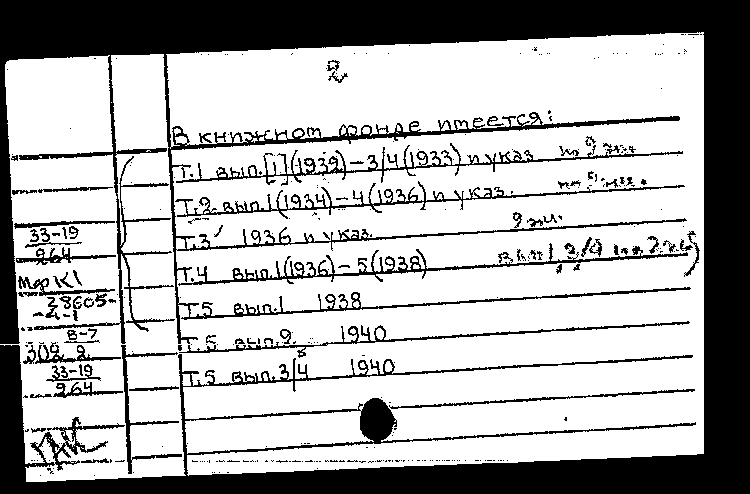 2
В книжном фонде имеется:
Т.1 вып.[1](1932)-3/4(1933) и указ по 2 экз.
Т.2. вып.1(1934)-4(1936) и указ. по 5 экз.
Т.3 1936 и указ. 2 эк.
Т.4 вып.1(1936)-5(1938) вып 1, 3/4
Т.5 вып.1 1938
Т.5 вып.2 1940
Т.5 вып.3/4 1940
33-19
264
Мф К1
28605-
-4-1
302 8-7
2
33-19
264